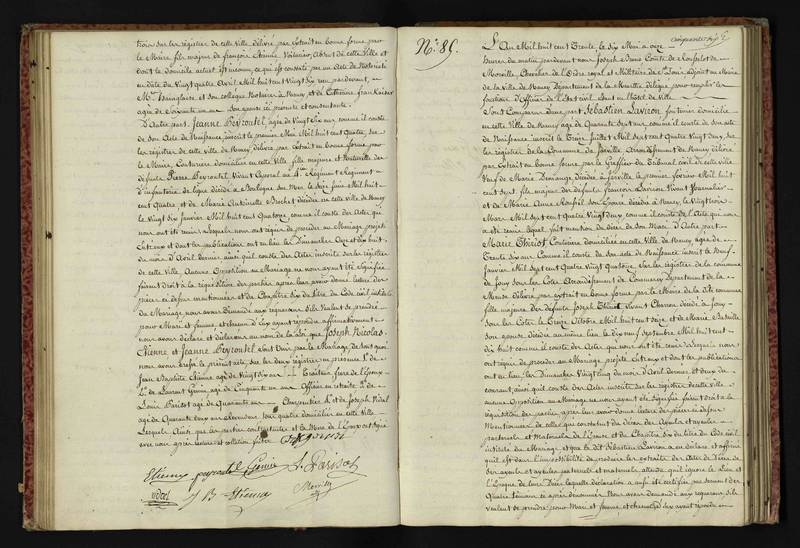 trois sur les registres de cette Ville délivré par extrait en bonne forme pour
le Maire, fils majeur de françois Etienne, Voiturier, Absent de cette Ville et
dont le domicile actuel est inconnu, ce qui est constaté par un Acte de Notoriété
en date du Vingt quatre Avril Mil huit cent Vingt six
et son collègue Notaires à Nancy, et de Catherine
agée de Soixante un ans Son épouse ici présente et consentante.
D'autre part Jeanne Peyroutel, agée de Vingt Six ans comme il conste
de son Acte de Naissance inscrit le premier Mai Mil huit cent Quatre, sur
les registres de cette ville de Nancy délivré par extrait en bonne forme pour
le Maire, Couturière domiciliée en cette Ville, fille majeure et Naturelle des
défunts Pierre Peyroutel, Vivant Caporal au Régiment
D'infanterie de ligne décédé à Boulogne Sur Mer, le Seize Mil huit
cent Quatre et de Marie Antoinette Brochet décédée en cette Ville de Nancy
le Vingt dix Janvier Mil huit cent Quatorze, comme il conste des Actes qui
nous ont été remis, Lesquels nous ont requis de procéder au Mariage projeté
Entr'eux et dont les publications ont eu lieu les Dimanches Onze et dix huit
du mois d'Avril dernier ainsi qu'il conste des Actes inscrits sur les registres
de cette ville, Aucune Opposition au Mariage ne nous ayant été Signifiée
faisant droit à la réquisition des parties après leur avoir donné lecture des
pièces ci dessus mentionnées et du Chapitre Six du titre du Code civil intitulé
du Mariage, nous avons demandé aux requérans s'ils Veulent se prendre
pour Mari et femme, et chacun d'eux ayant répondu affirmativement
nous avons déclaré et déclarons au nom de la Loi que Joseph Nicolas
Etienne et Jeanne Peyroutel sont Unis par le Mariage de tout quoi
nous avons dressé le présent acte, sur les deux registres en présence 1° de
Jean Baptiste Etienne agé de Vingt dix ans frère de l'époux
2° de Laurent Genin agé de Cinquante un ans en retraite 3° de
Louis Parisot agé de Quarante ans Charpentier 4° et de Joseph Vidal
agé de Quarante deux ans tous quatre domiciliés en cette Ville
Lesquels Ainsi que les parties contractantes et la Mère de l'Epoux ont signé
avec nous après lecture et collation faites.
Etienne peyroutel Genin L. Parisot
vidal J B Etienne
N°. 85.
L'An Mil huit cent Trente le Six Mai à onze
heures du matin pardevant nous Joseph
Moreville, Chevalier de l'Ordre royal et Militaire de St Louis, adjoint au Maire
de la Ville de Nancy, Département de la Meurthe, délégué pour remplir les
fonctions d'Officier de l'état civil, Sont en l'hôtel de Ville
Sont Comparus d'une part Sébastien Lavison, domicilié
en cette Ville de Nancy agé de Quarante Sept ans comme il conste de son Acte
de Naissance inscrit le Treize juillet Mil Sept cent Quatre Vingt deux, sur
les registres de la Commune de Javille, Arrondissement de Nancy délivré
par Extrait en bonne forme par le Greffier du Tribunal civil de cette ville
Veuf de Marie Demange décédée à Javille le premier février Mil huit
cent Sept, fils majeur des défunts François Lavison Vivant Journalier
et de Marie Anne Son Epouse décédés à Nancy, le Vingt trois
Mars Mil Sept cent Quatre Vingt deux comme il conste de l'Acte qui nous
a été remis lequel fait mention du décès de son Mari D'autre part
Marie Thiriot Couturière domiciliée en cette Ville de Nancy, agée de
Trente Six ans comme il conste de son acte de Naissance inscrit le Neuf
Janvier Mil Sept cent Quatre Vingt Quatorze, Sur les registres de la commune
de Jouy sous les Côtes Arrondissement de Commercy Département de la
Meuse délivré par extrait en bonne forme par le Maire de la dite Commune
fille majeure des défunts Joseph Thiriot Vivant Charron décédé à Jouy
sous les Côtes le Treize Octobre Mil huit cent Seize, et de Marie
son épouse décédée au même lieu le dix neuf Septembre Mil huit cent
dix huit comme il conste des Actes qui nous ont été remis Lesquels nous
ont requis de procéder au Mariage, projeté Entr'eux et dont les publications
ont eu lieu les Dimanches Vingt cinq du mois d'Avril dernier et deux du
courant, ainsi qu'il conste des Actes inscrits Sur les registres de cette ville
aucune Opposition au Mariage ne nous ayant été signifiée faisant droit à la
réquisition des parties, après leur avoir donné lecture des pièces ci dessus
Mentionnées de celles qui constatent du décès des Ayeuls et ayeules
paternels et Maternels de l'Epouse et du Chapitre Six du titre du Code civil
intitulé du Mariage, et que le dit Sébastien Lavison a en déclaré et affirmé
qu'il est dans l'impossibilité de produire les extraits des Actes de Décès de
ses ayeuls et ayeules paternels et maternels, attendu qu'il ignore le Lieu et
l'Epoque de leurs Décès laquelle déclaration a aussi été certifiée par serment des
Quatre témoins ci après dénommés. Nous avons demandé aux requérans S'ils
veulent se prendre pour Mari et femme, et chacun d'eux ayant répondu